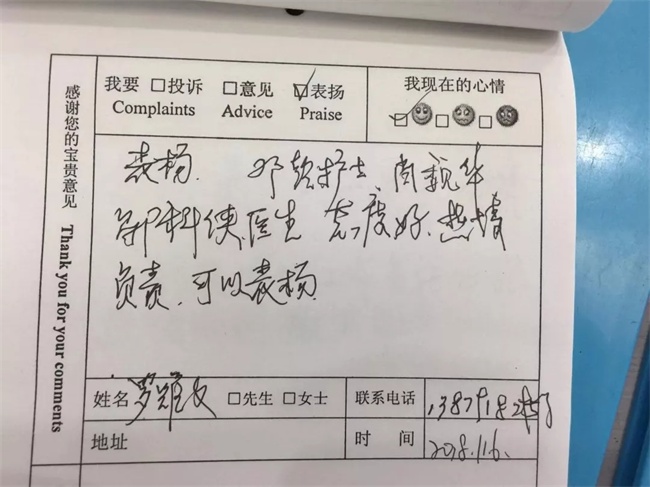 感谢您的宝贵意见 Thank you for your comments
我要 □投诉 □意见 ☑表扬 我现在的心情
Complaints Advice Praise
表扬. 护士、
医生 态度好.热情
负责.可以表扬.
姓名 □先生 □女士 联系电话
地址 时 间 2018.11.6.